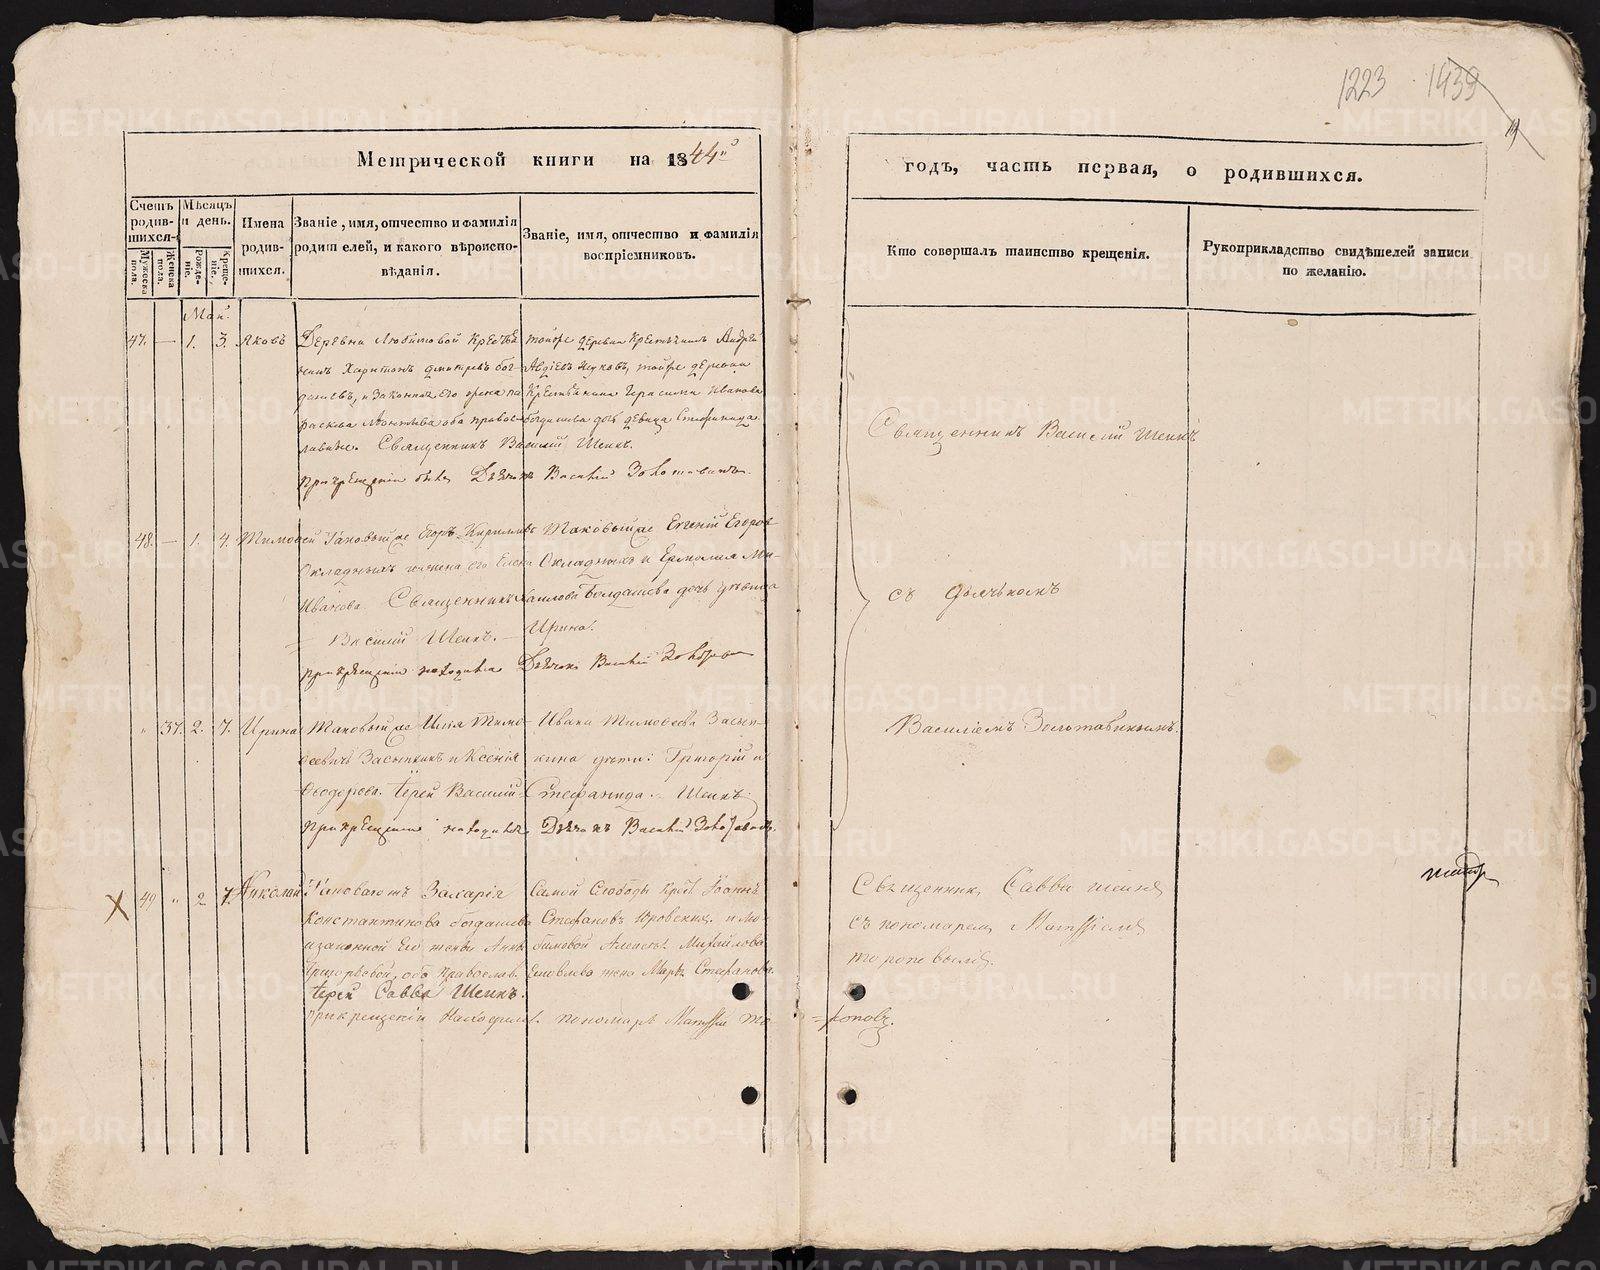 1223 1439
Метрической книги на 1844й
годъ, часть первая, о родившихся.
Счетъ родив-шихся.
Мужеска пола.
Женска пола.
Мѣсяцъ и день.
Рожде-ніе.
Креще-ніе.
Имена родив-шихся.
Званіе, имя, отчество и фамилія
родителей, и какого вѣроиспо-
вѣданія.
Званіе, имя, отчество и фамилія
воспріемниковъ.
Кто совершалъ таинство крещенія.
Рукоприкладство свидѣтелей записи
по желанію.
Маій
47. — 1. 3. Яковъ
Деревни Любимовой Крестья
нинъ Харитонъ Дмитревъ бог-
дашевъ, и Законная его жена па
раскева оба правос-
лавные. Священникъ Василий Шеинъ.
при крещении былъ Дьячокъ Василий
тойже деревни Крестьянинъ Андрей
Авдіевъ тойже деревни
Крестьянина Герасима Иванова
богдашева дочь девица Стефанида
48. — 1. 4. Тимофей
Таковыйже Егоръ Кирилловъ
Окладныхъ и жена его Елена
Иванова. Священникъ
Василий Шеинъ.
при крещении находился Дьячокъ Василий
Таковыйже Евгений Егоровъ
Окладныхъ и Ермолая Ми-
хаилова Богдашева дочь девица
Ирина.
" 37. 2. 7. Ирина
Таковыйже Илья Тимо-
феевичъ Засыпкинъ и Ксенія
Феодорова. Іерей Василий
При крещении находился Дьячокъ Василий
Ивана Тимофеева Засып-
кина дети: Григорій и
Стефанида. Шеинъ
Священникъ Василий Шеинъ
съ дьячькомъ
Василіемъ Золотавинымъ.
49 " 2 7. Николай
Таковаготъ Захарія
Константинова богдашева
и законной Его жены Анны
Григорьевой, оба православ.
Іерей Савва Шеинъ.
При крещении Находился пономарь Матфий То-
=роповъ.
Самой Слободы Крес. Іоаннъ
Стефановъ Юровскихъ. и Лю-
бимовой Алексея Михайлова
жена Марья Стефанова.
Священник, Савва шеинъ
съ пономаремъ Матфіемъ
тороповымъ.